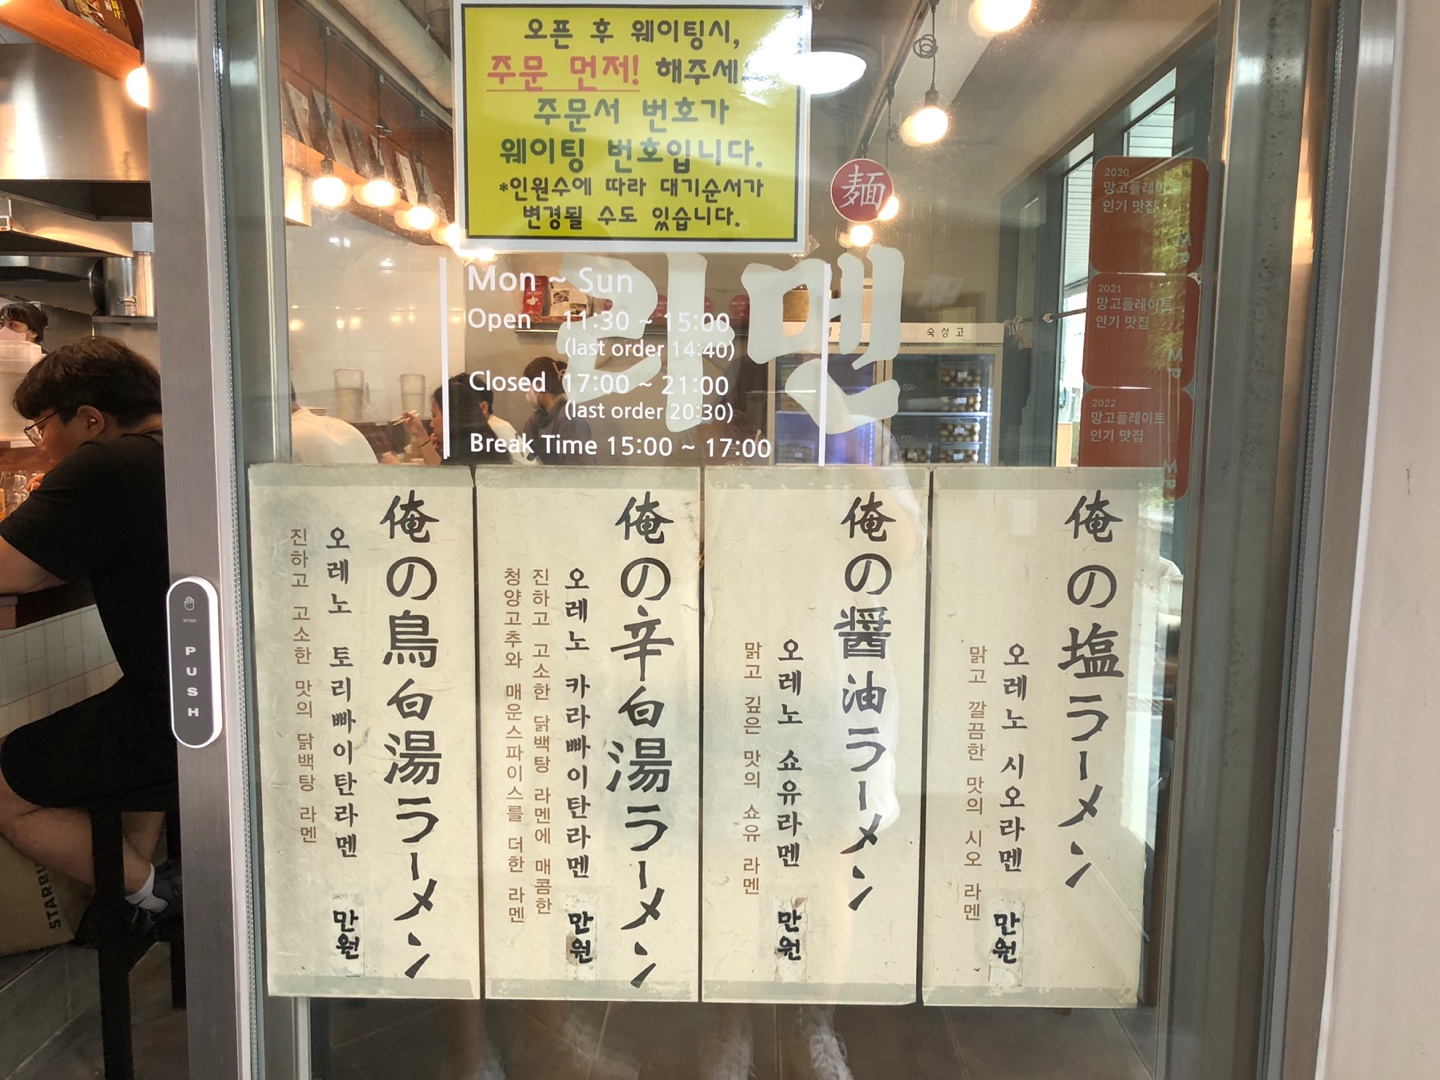 오픈 후 웨이팅시,
주문 먼저! 해주세
주문서 번호가
웨이팅 번호입니다.
*인원수에 따라 대기순서가
변경될 수도 있습니다.
麺
라멘
Mon ~ Sun
Open 11:30 ~ 15:00
(last order 14:40)
Closed 17:00 ~ 21:00
(last order 20:30)
Break Time 15:00 ~ 17:00
숙성고
2020
망고플레이트
인기 맛집
2021
망고플레이트
인기 맛집
2022
망고플레이트
인기 맛집
俺の塩ラーメン
오레노 시오라멘 만원
맑고 깔끔한 맛의 시오 라멘
俺の醤油ラーメン
오레노 쇼유라멘 만원
맑고 깊은 맛의 쇼유 라멘
俺の辛白湯ラーメン
오레노 카라빠이탄라멘 만원
진하고 고소한 닭백탕 라멘에 매콤한
청양고추와 매운스파이스를 더한 라멘
俺の鳥白湯ラーメン
오레노 토리빠이탄라멘 만원
진하고 고소한 맛의 닭백탕 라멘
PUSH